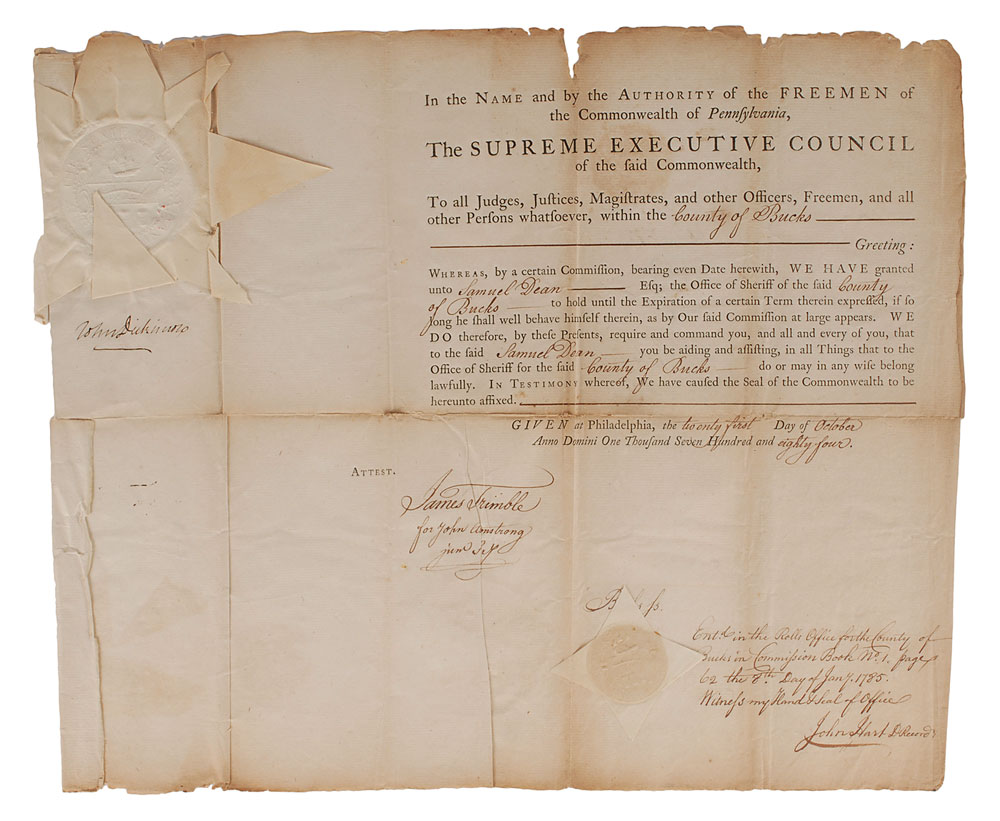 In the NAME and by the AUTHORITY of the FREEMEN of
the Commonwealth of Pennſylvania,
The SUPREME EXECUTIVE COUNCIL
of the ſaid Commonwealth,
To all Judges, Juſtices, Magiſtrates, and other Officers, Freemen, and all
other Perſons whatſoever, within the County of Bucks
Greeting:
WHEREAS, by a certain Commiſſion, bearing even Date herewith, WE HAVE granted
unto Samuel Dean Eſq; the Office of Sheriff of the ſaid County
of Bucks to hold until the Expiration of a certain Term therein expreſſed, if ſo
long he ſhall well behave himſelf therein, as by Our ſaid Commiſſion at large appears. WE
DO therefore, by theſe Preſents, require and command you, and all and every of you, that
to the ſaid Samuel Dean you be aiding and aſſiſting, in all Things that to the
Office of Sheriff for the ſaid County of Bucks do or may in any wiſe belong
lawfully. IN TESTIMONY whereof, We have cauſed the Seal of the Commonwealth to be
hereunto affixed.
John Dickinson
GIVEN at Philadelphia, the twenty firſt Day of October
Anno Domini One Thouſand Seven Hundred and eighty four.
ATTEST.
James Trimble
for John Armstrong
junr Secy
B ſs.
Entd in the Rolls Office for the County of
Bucks in Commiſsion Book No. 1. page
62 the 8th Day of Jany. 1785.
Witneſs my Hand & Seal of Office
John Hart D Recordr